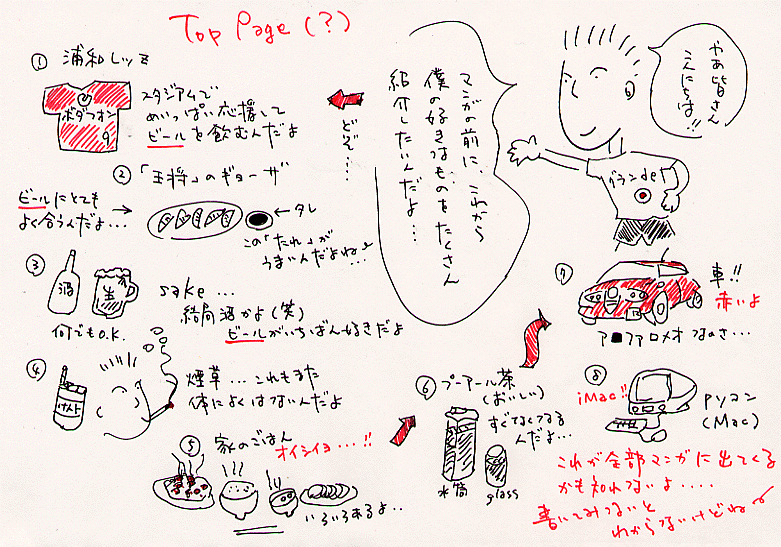 Top Page (?)
やあ皆さん
こんにちは!!
マンガの前に、これから
僕の好きなものをたくさん
紹介したいんだよ…
どぞ……
グランde
① 浦和レッズ
ボダフォン
9
スタジアムで
めいっぱい応援して
ビールを飲むんだよ
② 「王将」のギョーザ
ビールにとても
よく合うんだよ…
タレ
この「たれ」が
うまいんだよね
③
酒
生
何でもO.K.
sake…
結局酒かよ(笑)
ビールがいちばん好きだよ
④
けんと
煙草…これもまた
体によくはないんだよ
⑤ 家のごはん
オイシイヨ…!!
いろいろあるよ..
⑥ プーアール茶
(おいしい)
すぐなくなる
んだよ…
水筒
glass
⑦
車!!
赤いよ
アルファロメオなのさ…
⑧
iMac!!
パソコン
(Mac)
これが全部マンガに出てくる
かも知れないよ‥‥
書いてみないと
わからないけどね